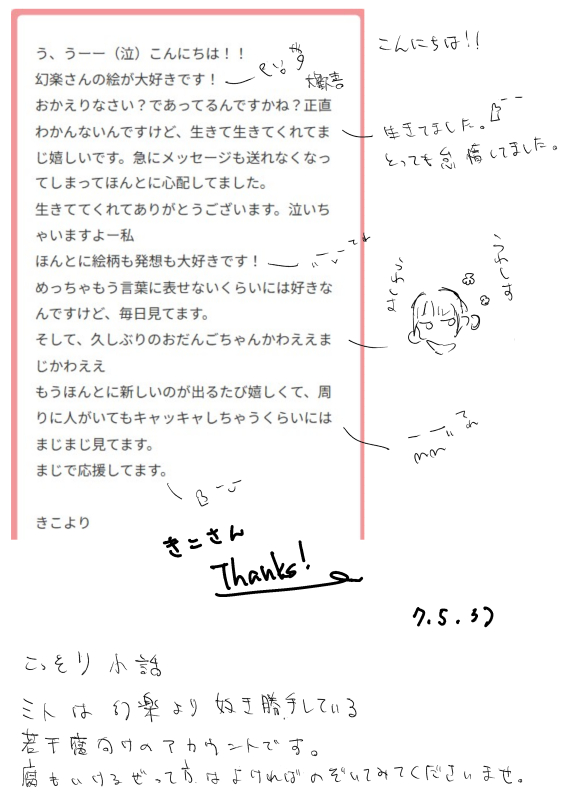 う、うーー（泣）こんにちは！！
幻楽さんの絵が大好きです！
おかえりなさい？であってるんですかね？正直
わかんないんですけど、生きて生きてくれてま
じ嬉しいです。急にメッセージも送れなくなっ
てしまってほんとに心配してました。
生きててくれてありがとうございます。泣いち
ゃいますよー私
ほんとに絵柄も発想も大好きです！
めっちゃもう言葉に表せないくらいには好きな
んですけど、毎日見てます。
そして、久しぶりのおだんごちゃんかわええま
じかわええ
もうほんとに新しいのが出るたび嬉しくて、周
りに人がいてもキャッキャしちゃうくらいには
まじまじ見てます。
まじで応援してます。
きこより
大歓喜
こんにちは!!
生きてました。
とっても怠惰してました。
うれします
うれします
てれ
てれ
きこさん
Thanks!
こっそり小話
ミトは幻楽より好き勝手している
若干腐向けのアカウントです。
腐もいけるぜって方はよければのぞいてみてくださいませ。